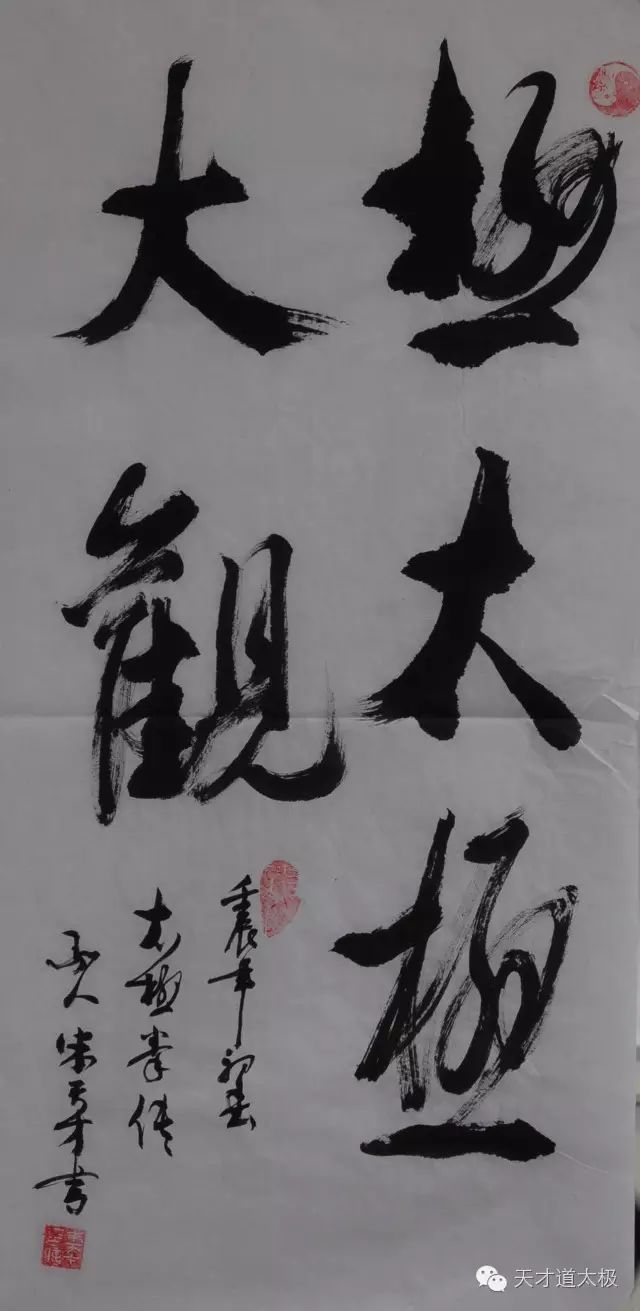 極太極
大觀
壬辰年初春
太極拳傳
承人朱天才書
天才道太极